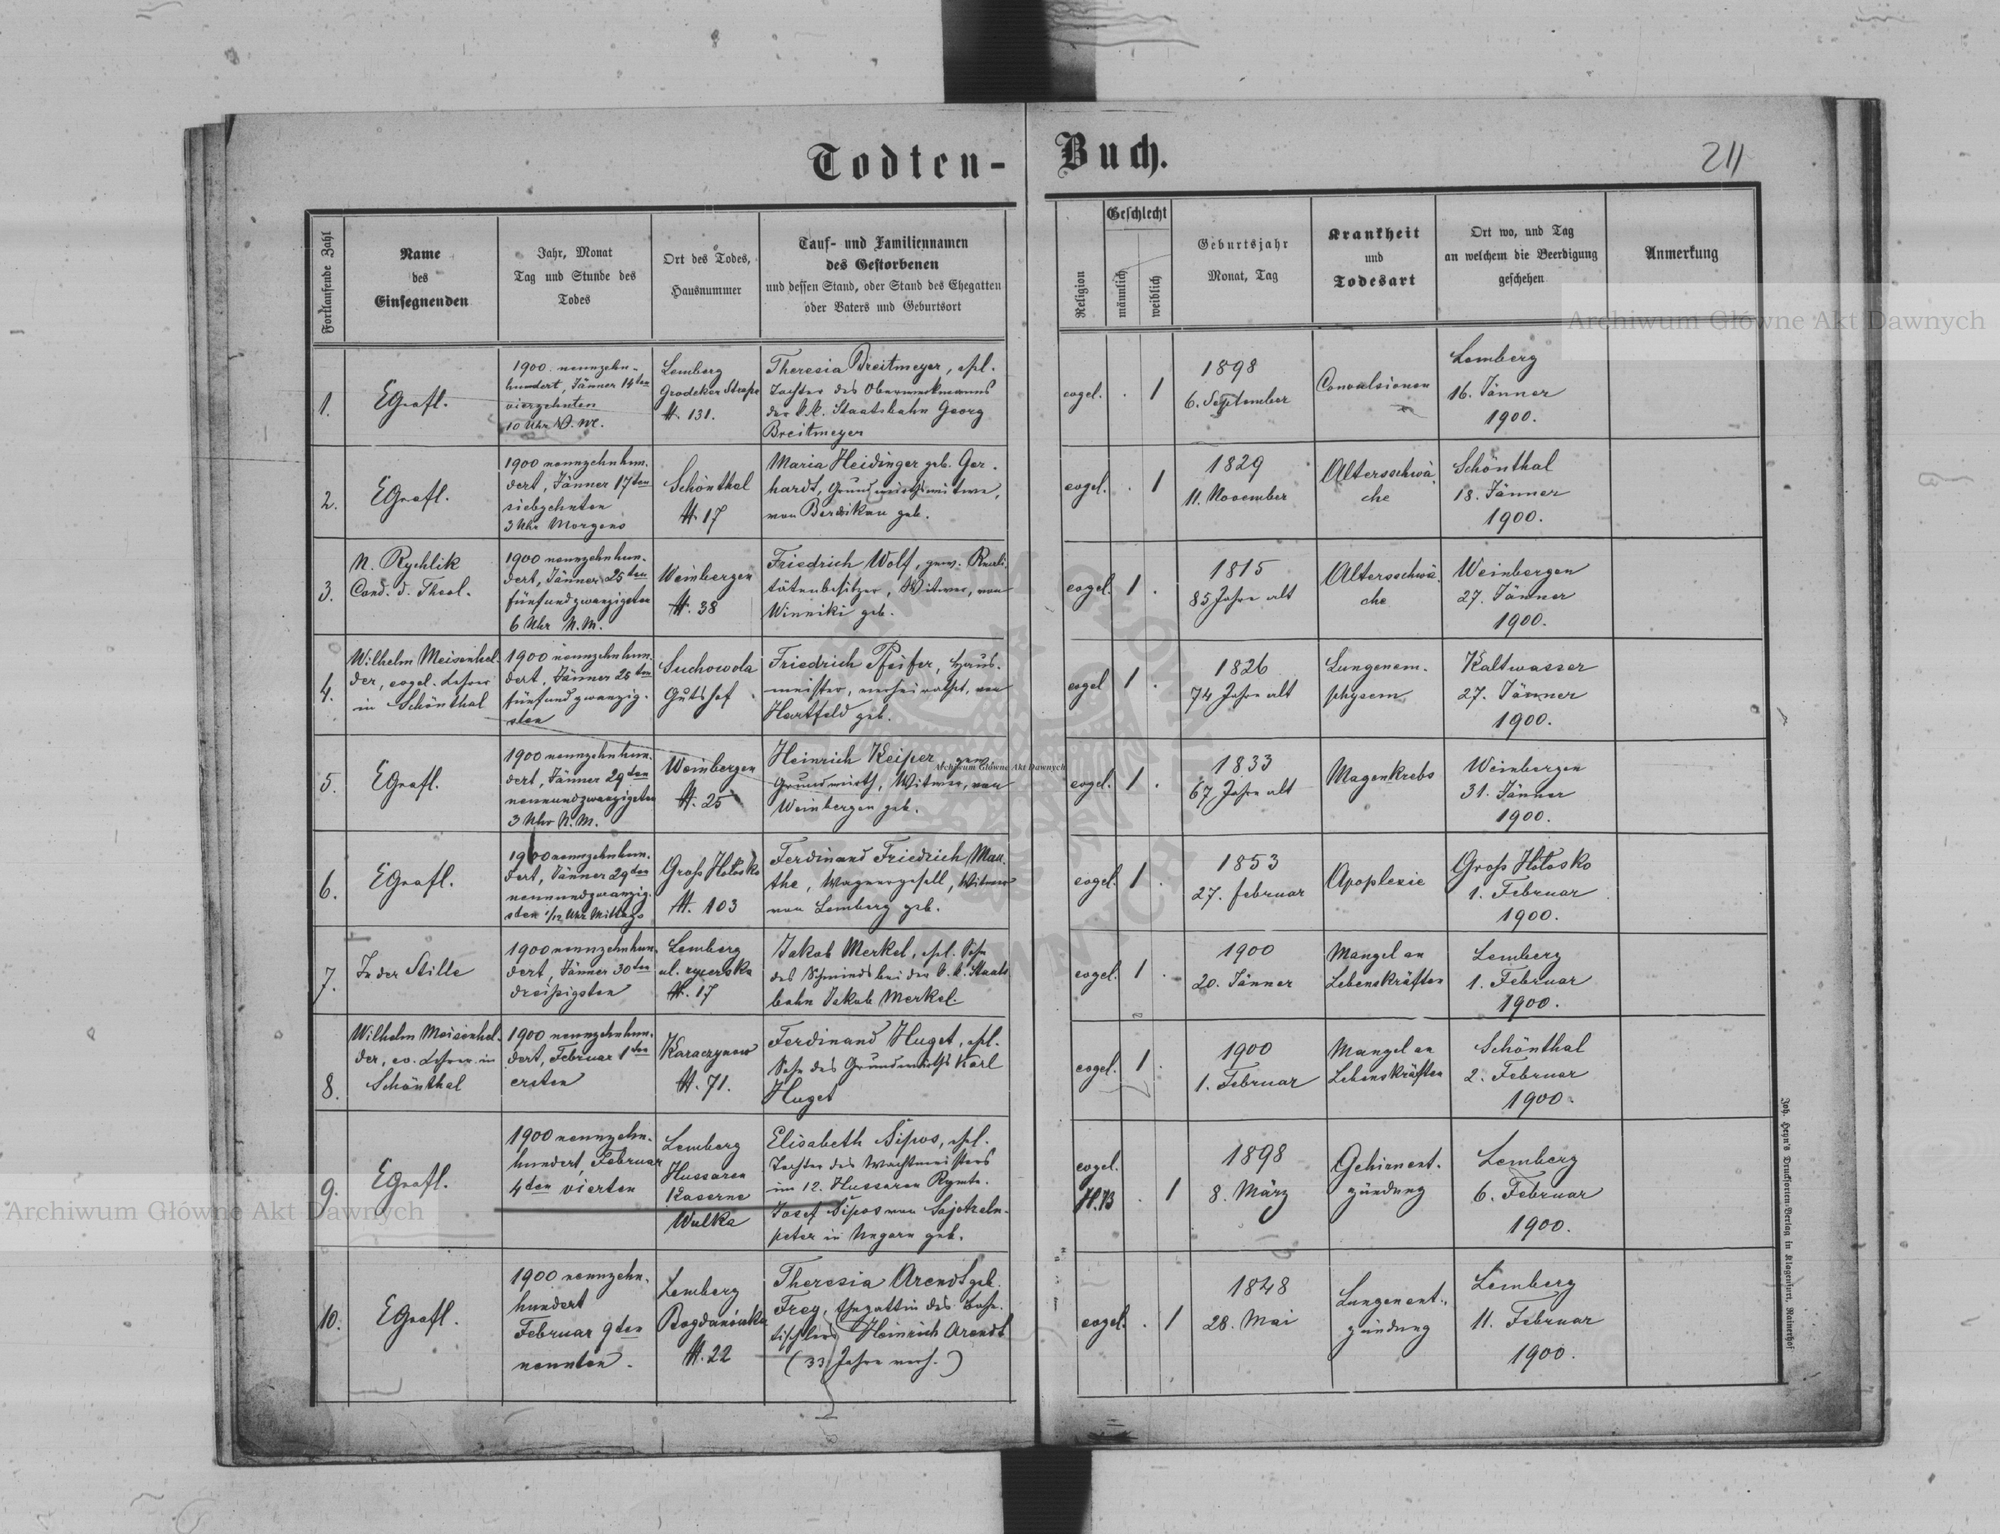 Todten-Buch.
211
Fortlaufende Zahl
Name
des
Einsegnenden
Jahr, Monat
Tag und Stunde des
Todes
Ort des Todes,
Hausnummer
Tauf- und Familiennamen
des Gestorbenen
und dessen Stand, oder Stand des Ehegatten
oder Vaters und Geburtsort
Religion
Geschlecht
männlich
weiblich
Geburtsjahr
Monat, Tag
Krankheit
und
Todesart
Ort wo, und Tag
an welchem die Beerdigung
geschehen
Anmerkung
1.
EGrafl.
1900 neunzehn-
hundert, Jänner 14ten
vierzehnten
10 Uhr V. M.
Lemberg
Grodeker Strasse
N. 131.
Theresia Breitmeyer, ehl.
Tochter des Oberwerkmanns
der k.k. Staatsbahn Georg
Breitmeyer
evgel. . 1
1898
6. September
Convulsionen
Lemberg
16. Jänner
1900.
2.
EGrafl.
1900 neunzehnhun-
dert, Jänner 17ten
siebzehnten
3 Uhr Morgens
Schönthal
N. 17
Maria Heidinger geb. Ger-
hardt, Grundwirthswitwe,
von geb.
evgel. . 1
1829
11. November
Altersschwä-
che
Schönthal
18. Jänner
1900.
3.
N. Rychlik
Cand. d. Theol.
1900 neunzehnhun-
dert, Jänner 25ten
fünfundzwanzigsten
6 Uhr N.M.
Weinbergen
N. 38
Friedrich Wolf, gew. Reali-
tätenbesitzer, Witwer, von
Winniki geb.
evgel. 1 .
1815
85 Jahre alt
Altersschwä-
che
Weinbergen
27. Jänner
1900.
4.
Wilhelm Meisenhel-
der, evgel. Lehrer
in Schönthal
1900 neunzehnhun-
dert, Jänner 25ten
fünfundzwanzig-
sten
Suchowola
Gutshof
Friedrich Pfeifer, Haus-
meister, verheirathet, von
Hartfeld geb.
evgel 1 .
1826
74 Jahre alt
Lungenem-
physem
Kaltwasser
27. Jänner
1900.
5.
EGrafl.
1900 neunzehnhun-
dert, Jänner 29ten
neunundzwanzigsten
3 Uhr N.M.
Weinbergen
N. 25
Heinrich Keiper, gew.
Grundwirth, Witwer, von
Weinbergen geb.
evgel. 1 .
1833
67 Jahre alt
Magenkrebs
Weinbergen
31. Jänner
1900.
6.
EGrafl.
1900 neunzehnhun-
dert, Jänner 29ten
neunundzwanzig-
sten 1/12 Uhr Mittags
Gross Hołosko
N. 103
Ferdinand Friedrich Mau-
the, Wagnergesell, Witwer
von Lemberg geb.
evgel. 1 .
1853
27. Februar
Apoplexie
Gross Hołosko
1. Februar
1900.
7.
In der Stille
1900 neunzehnhun-
dert, Jänner 30ten
dreissigsten
Lemberg
ul. rycerska
N. 17
Jakob Merkel, ehl. Sohn
des Schmieds bei der k.k. Staats-
bahn Jakob Merkel.
evgel. 1 .
1900
20. Jänner
Mangel an
Lebenskräften
Lemberg
1. Februar
1900.
8.
Wilhelm Meisenhel-
der, ev. Lehrer in
Schönthal
1900 neunzehnhun-
dert, Februar 1ten
ersten
Karaczynow
N. 71.
Ferdinand Huget, ehl.
Sohn des Grundwirths Karl
Huget
evgel. 1 .
1900
1. Februar
Mangel an
Lebenskräften
Schönthal
2. Februar
1900.
9.
EGrafl.
1900 neunzehn-
hundert, Februar
4ten vierten
Lemberg
Hussaren
Kaserne
Wulka
Elisabeth Sipos, ehl.
Tochter des Wachtmeisters
im 12. Hussaren Rgmte.
Josef Sipos von
peter in Ungarn geb.
evgel.
H.B . 1
1898
8. März
Gehirnent-
zündung
Lemberg
6. Februar
1900.
10.
EGrafl.
1900 neunzehn-
hundert
Februar 9ten
neunten.
Lemberg
Bogdanówka
N. 22
Theresia Arendt geb.
Frey, Ehegattin des Bahn-
tischlers Heinrich Arendt
(33 Jahre verh.)
evgel. . 1
1848
28. Mai
Lungenent-
zündung
Lemberg
11. Februar
1900.
Joh. Heyn's Drucksorten-Verlag in Klagenfurt, Rainerhof
Archiwum Główne Akt Dawnych
Archiwum Główne Akt Dawnych
Archiwum Główne Akt Dawnych